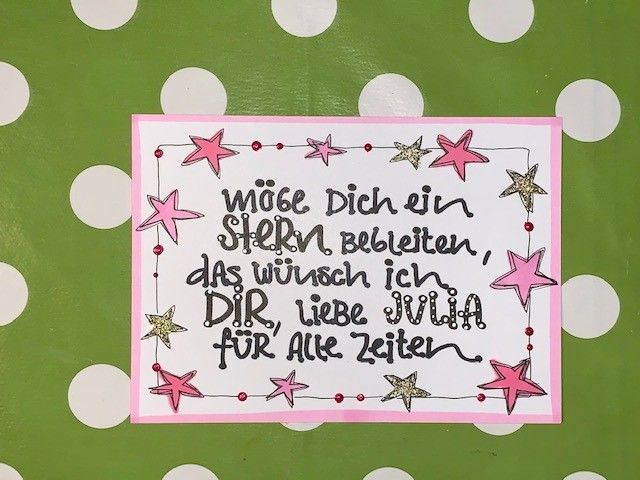 Möge Dich ein
Stern begleiten,
das wünsch ich
Dir, liebe Julia
für alle Zeiten